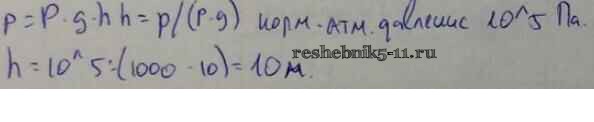 p=ρ·g·h h=p/(ρ·g) норм. атм. давление 10^5 Па.
reshebnik5-11.ru
h=10^5:(1000·10)=10м.